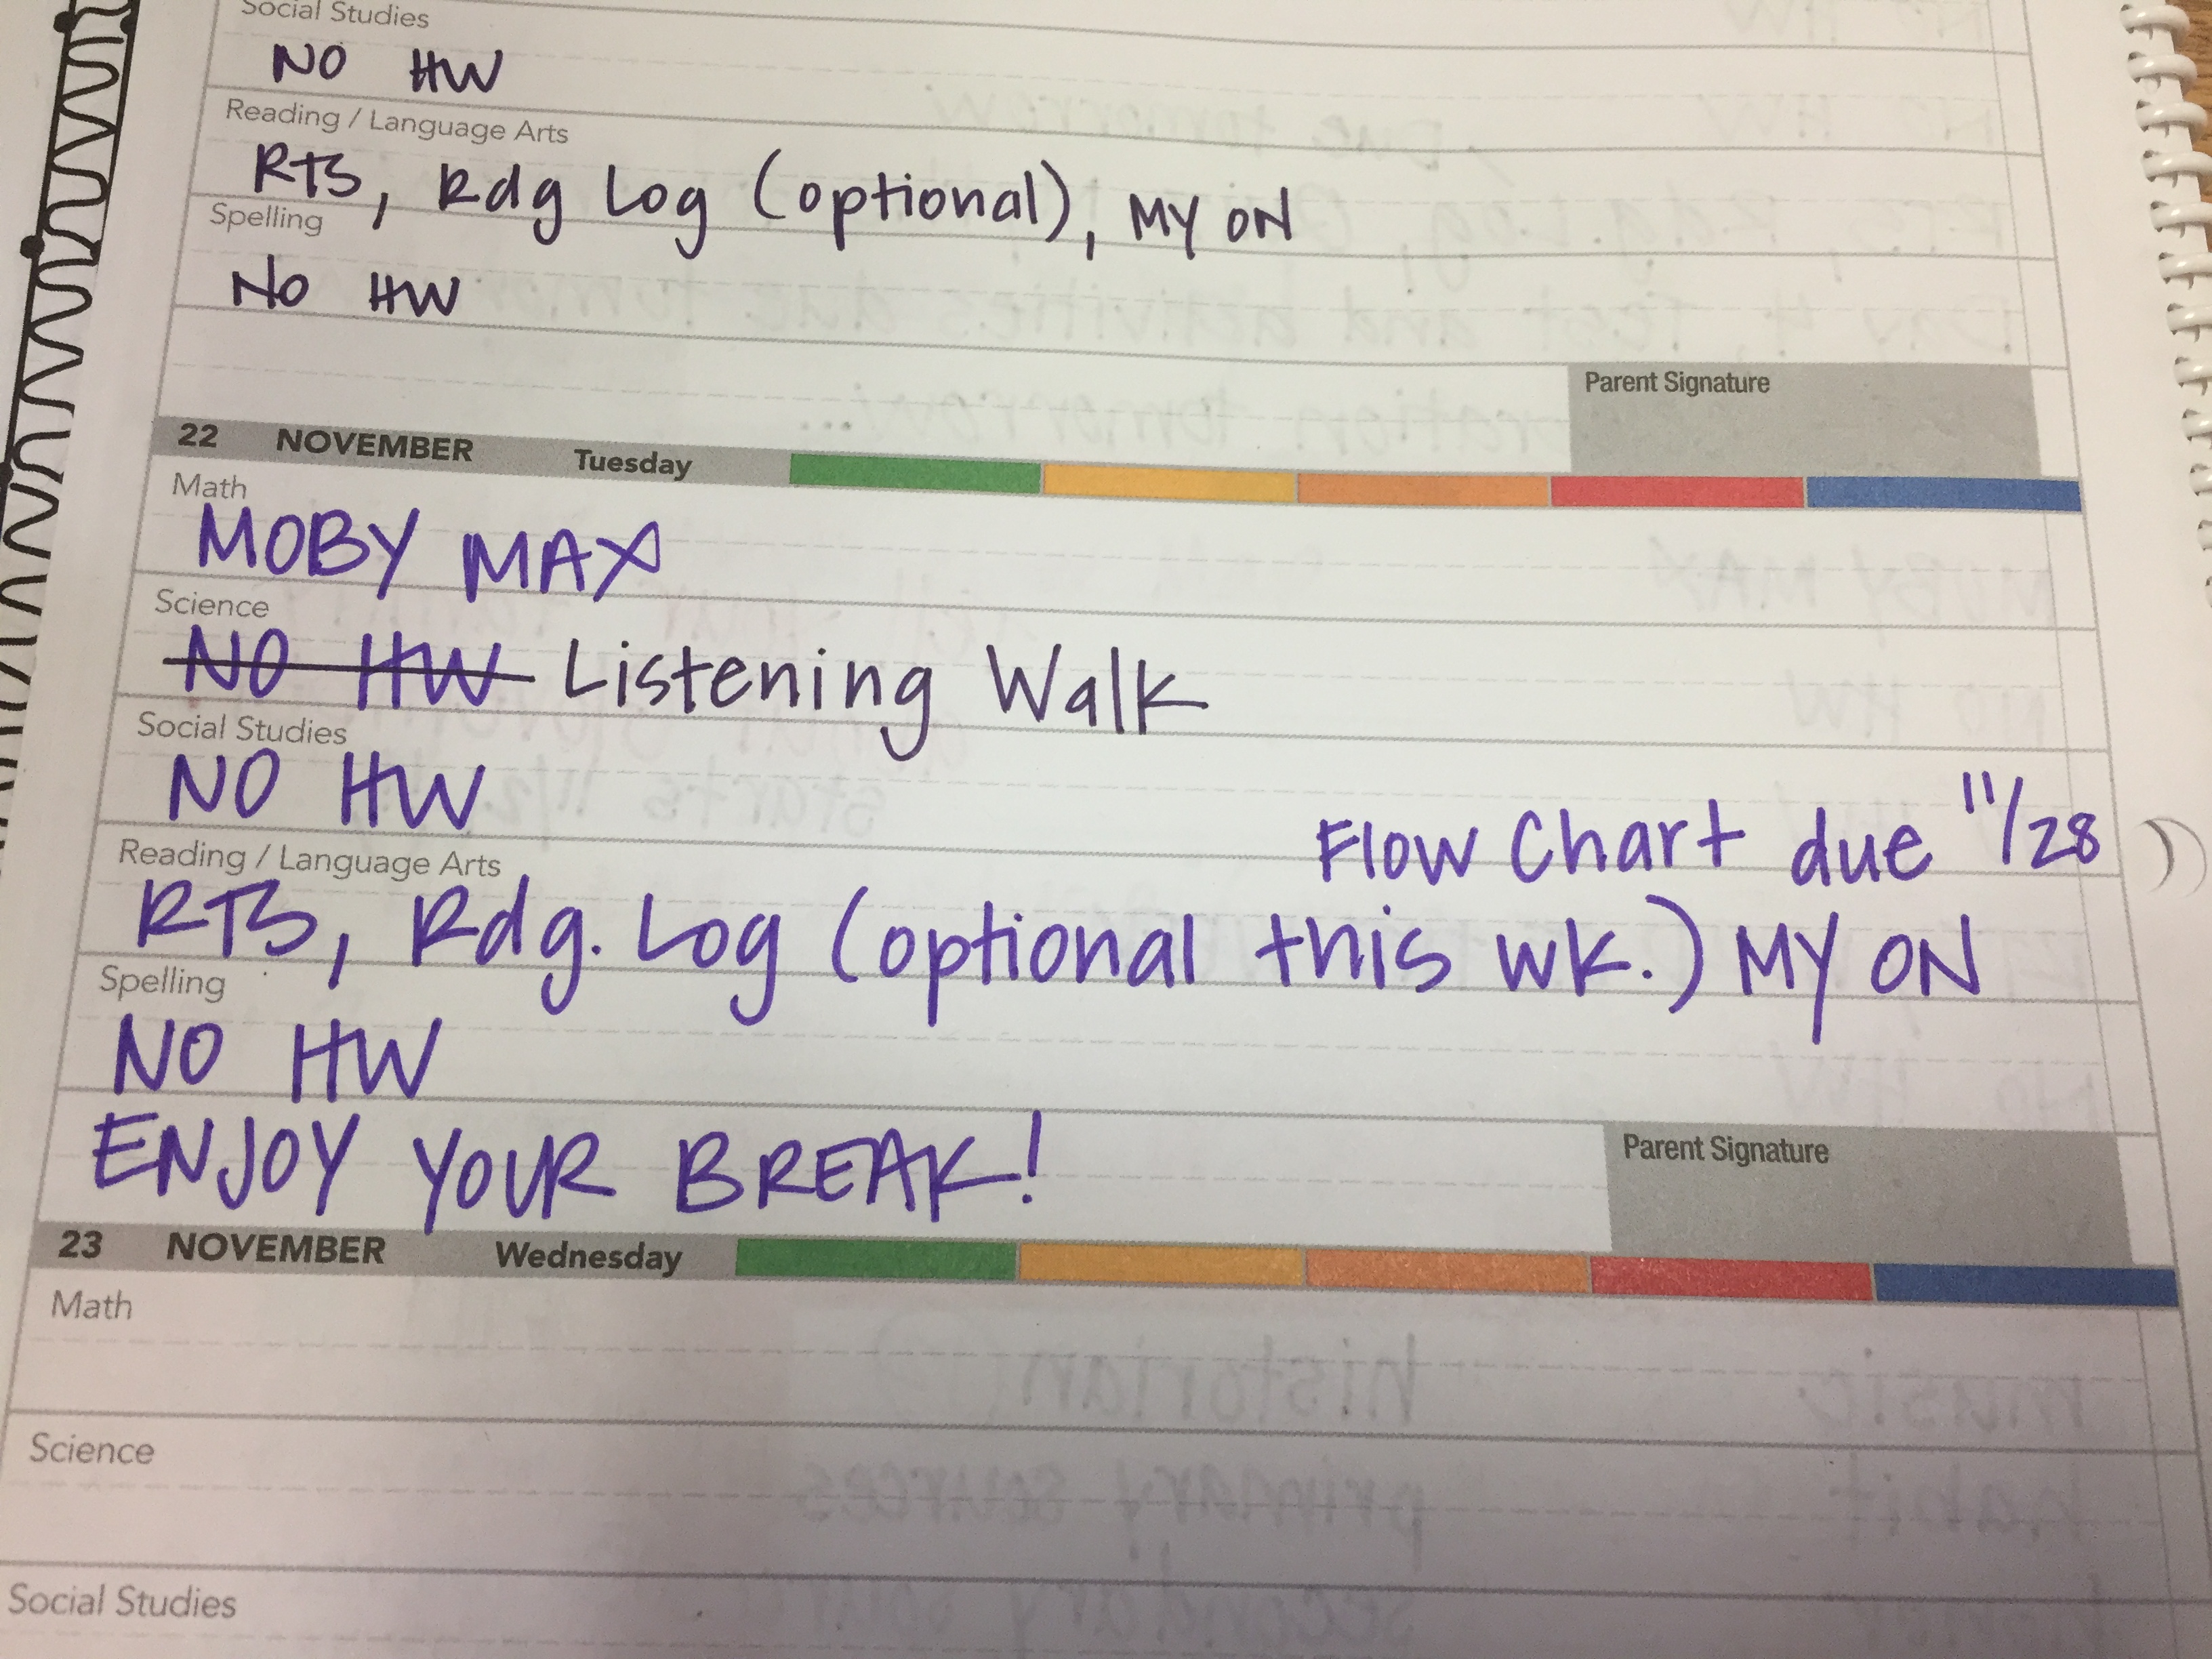 Social Studies
NO HW
Reading / Language Arts
RTB, Rdg Log (optional), MY ON
Spelling
No HW
Parent Signature
22 NOVEMBER Tuesday
Math
MOBY MAX
Science
NO HW Listening Walk
Social Studies
NO HW
Flow Chart due 11/28
Reading / Language Arts
RTB, Rdg. Log (optional this wk.) MY ON
Spelling
NO HW
ENJOY YOUR BREAK!
Parent Signature
23 NOVEMBER Wednesday
Math
historian
music
Science
primary sources
habit
Social Studies
secondary